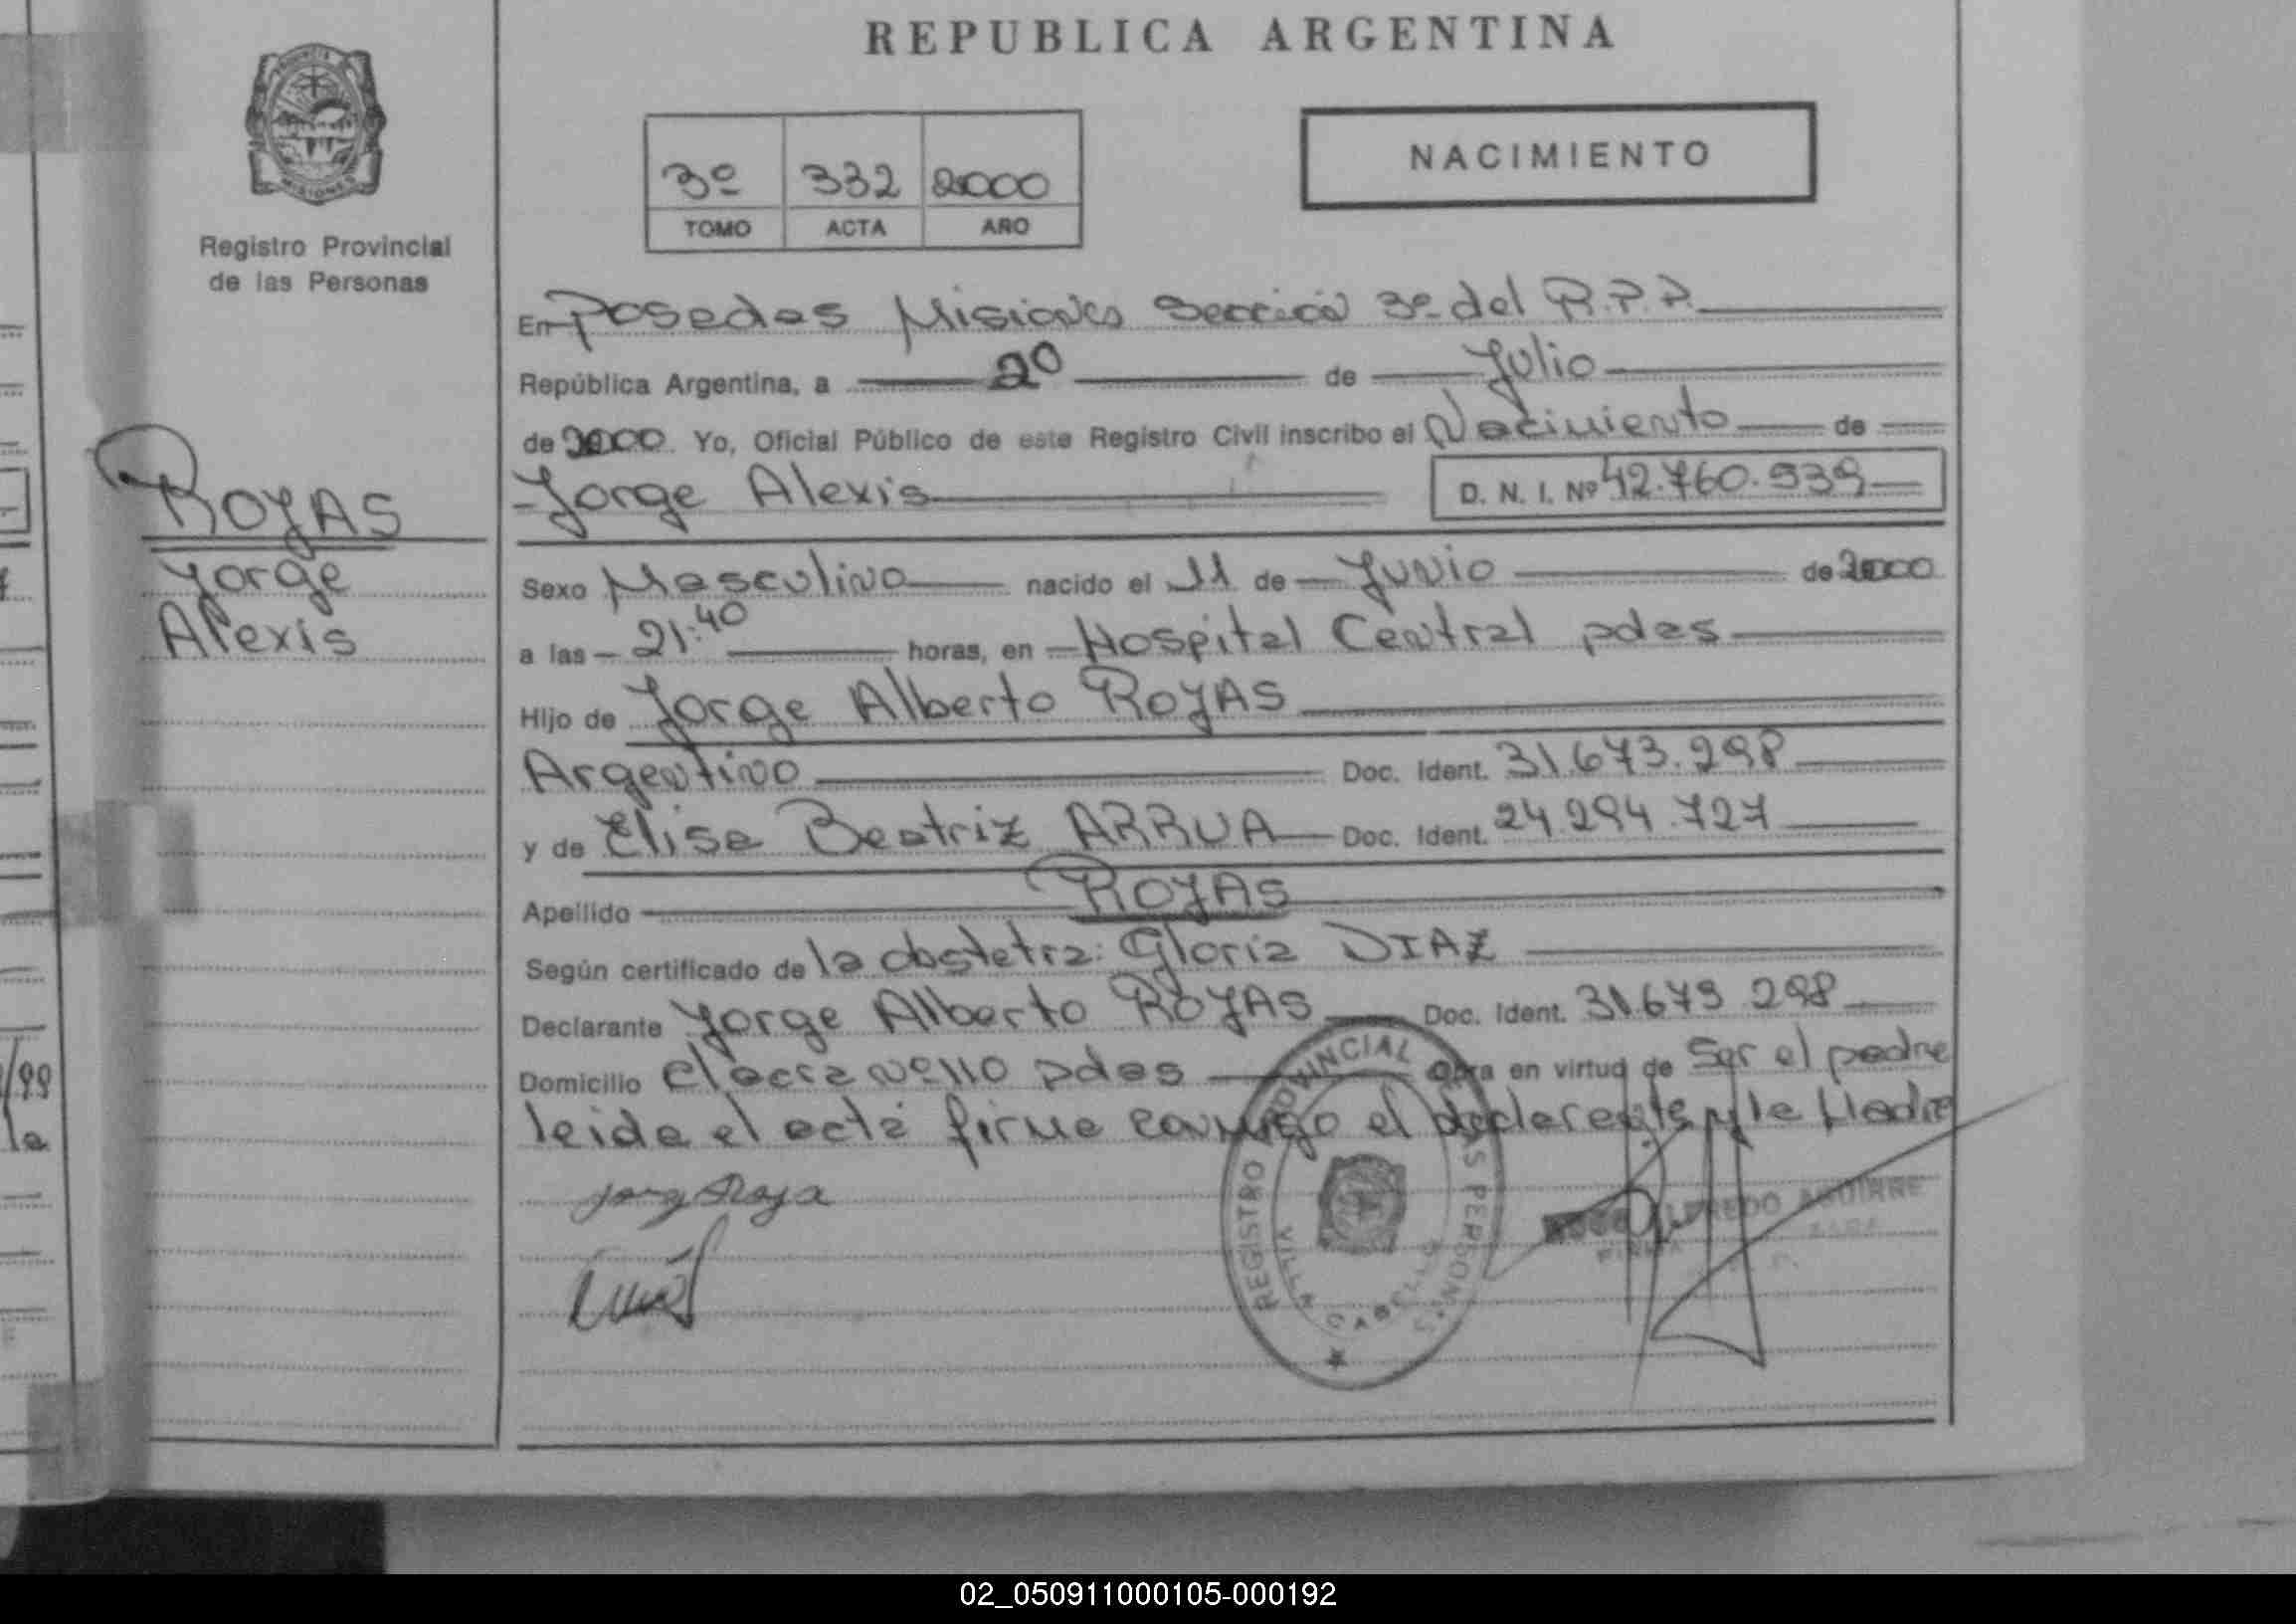 REPUBLICA ARGENTINA
MISIONES
Registro Provincial
de las Personas
3º 332 2000
TOMO ACTA AÑO
NACIMIENTO
ROJAS
Jorge
Alexis
En Posadas Misiones Sección 3º del R.P.P.
República Argentina, a 20 de Julio
de 2000. Yo, Oficial Público de este Registro Civil inscribo el Nacimiento de
Jorge Alexis D. N. I. Nº 42.760.939
Sexo Masculino nacido el 11 de Junio de 2000
a las 21:40 horas, en Hospital Central pdas
Hijo de Jorge Alberto ROJAS
Argentino Doc. Ident. 31.673.298
y de Elisa Beatriz ARRUA Doc. Ident. 24.294.727
Apellido ROJAS
Según certificado de la obstetra: Gloria DIAZ
Declarante Jorge Alberto ROJAS Doc. Ident. 31.673 298
Domicilio pdas Obra en virtud de Ser el padre
leida el acta firma conmigo el declarante y la Madre
REGISTRO PROVINCIAL DE LAS PERSONAS
VILLA CABELLO
ALFREDO AGUIRRE
02_050911000105-000192